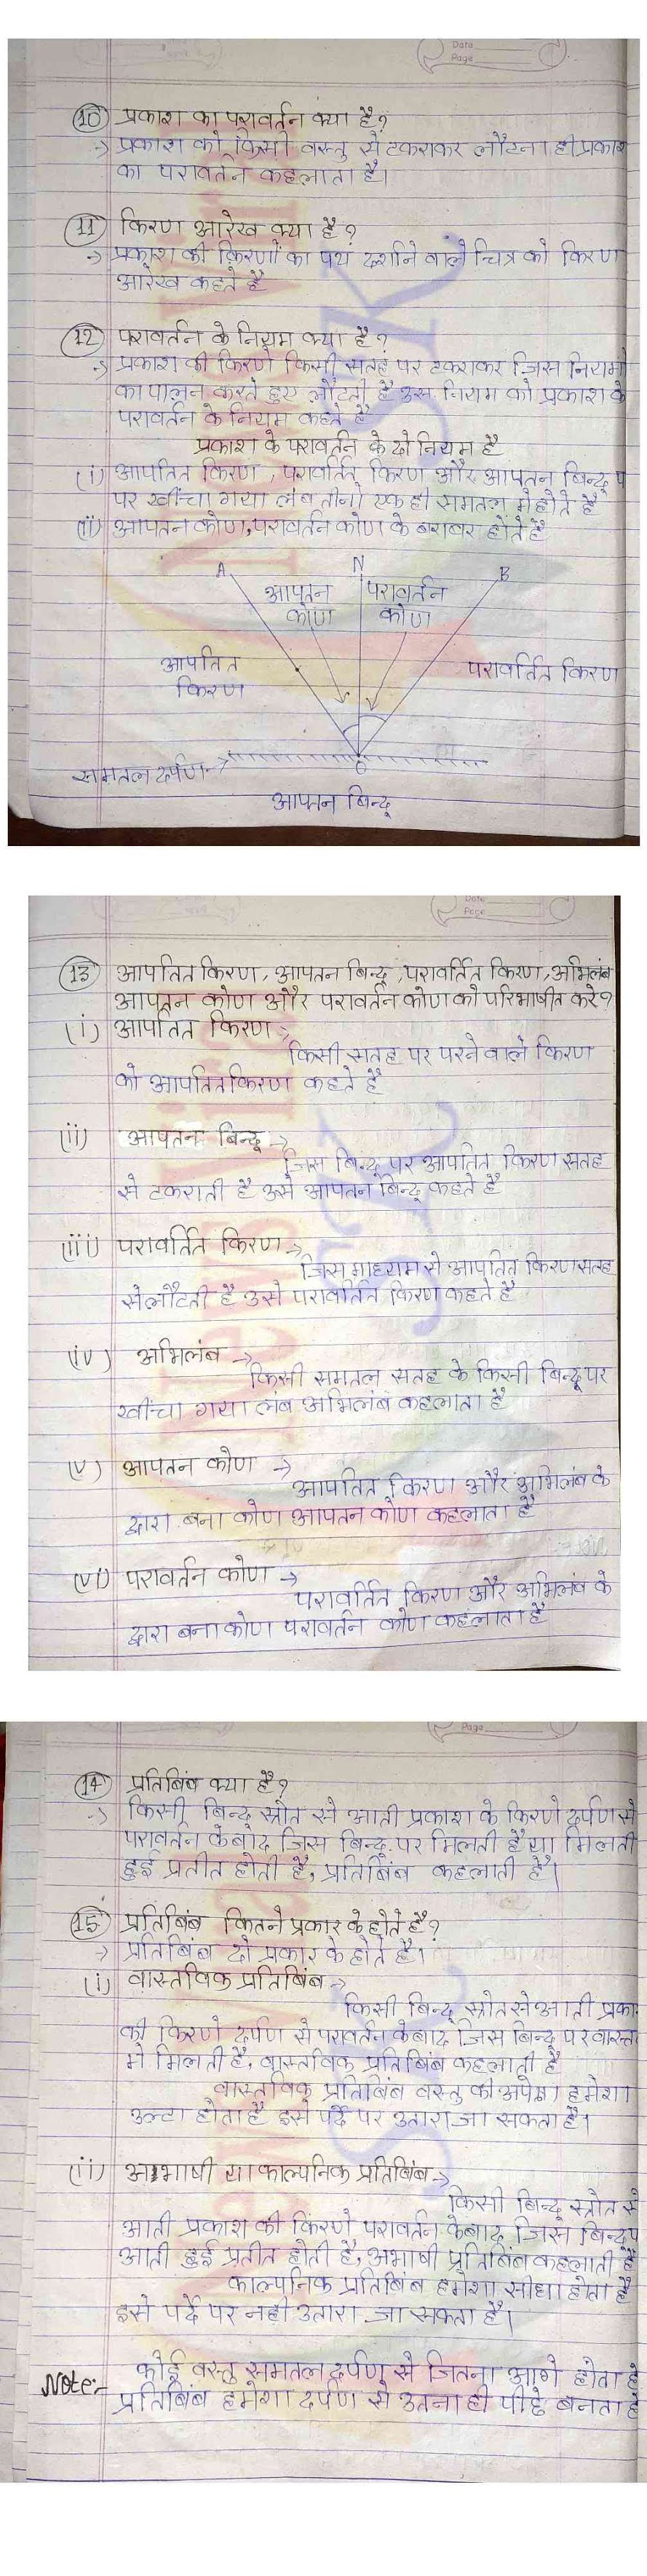 Date
Page
10 प्रकाश का परावर्तन क्या है?
→ प्रकाश को किसी वस्तु से टकराकर लौटना ही प्रकाश
का परावर्तन कहलाता है।
11 किरण आरेख क्या है?
→ प्रकाश की किरणों का पथ दर्शाने वाले चित्र को किरण
आरेख कहते है
12 परावर्तन के नियम क्या है?
→ प्रकाश की किरणे किसी सतह पर टकराकर जिस नियमो
का पालन करते हुए लौटती है उस नियम को प्रकाश के
परावर्तन के नियम कहते है
प्रकाश के परावर्तन के दो नियम है
(i) आपतित किरण, परावर्तित किरण और आपतन बिन्दू प
पर खींचा गया लंब तीनो एक ही समतल मे होते है
(ii) आपतन कोण, परावर्तन कोण के बराबर होते है
A N B
आपतन परावर्तन
कोण कोण
आपतित परावर्तित किरण
किरण
समतल दर्पण →
O
आपतन बिन्दू
Date
Page
13 आपतित किरण, आपतन बिन्दू, परावर्तित किरण, अभिलंब
आपतन कोण और परावर्तन कोण को परिभाषीत करे?
(i) आपतित किरण →
किसी सतह पर परने वाले किरण
को आपतित किरण कहते है
(ii) आपतन बिन्दू →
जिस बिन्दू पर आपतित किरण सतह
से टकराती है उसे आपतन बिन्दू कहते है
(iii) परावर्तित किरण →
जिस माध्यम से आपतित किरण सतह
से लौटती है उसे परावर्तित किरण कहते है
(iv) अभिलंब →
किसी समतल सतह के किसी बिन्दू पर
खींचा गया लंब अभिलंब कहलाता है
(v) आपतन कोण →
आपतित किरण और अभिलंब के
द्वारा बना कोण आपतन कोण कहलाता है
(vi) परावर्तन कोण →
परावर्तित किरण और अभिलंब के
द्वारा बना कोण परावर्तन कोण कहलाता है
Page
14 प्रतिबिंब क्या है?
→ किसी बिन्दू स्त्रोत से आती प्रकाश के किरणे दर्पण से
परावर्तन के बाद जिस बिन्दू पर मिलती है या मिलती
हुई प्रतीत होती है, प्रतिबिंब कहलाती है।
15 प्रतिबिंब कितने प्रकार के होते है?
→ प्रतिबिंब दो प्रकार के होते है।
(i) वास्तविक प्रतिबिंब →
किसी बिन्दू स्त्रोत से आती प्रका
की किरणे दर्पण से परावर्तन के बाद जिस बिन्दू पर वास्त
मे मिलती है, वास्तविक प्रतिबिंब कहलाती है
वास्तविक प्रतिबिंब वस्तु की अपेक्षा हमेशा
उल्टा होता है इसे पर्दे पर उतारा जा सकता है।
(ii) आभाषी या काल्पनिक प्रतिबिंब →
किसी बिन्दू स्त्रोत से
आती प्रकाश की किरणे परावर्तन के बाद जिस बिन्दू प
आती हुई प्रतीत होती है, अभाषी प्रतिबिंब कहलाती है
काल्पनिक प्रतिबिंब हमेशा सीधा होता है
इसे पर्दे पर नही उतारा जा सकता है।
Note:- कोई वस्तु समतल दर्पण से जितना आगे होता है
प्रतिबिंब हमेशा दर्पण से उतना ही पीछे बनता है